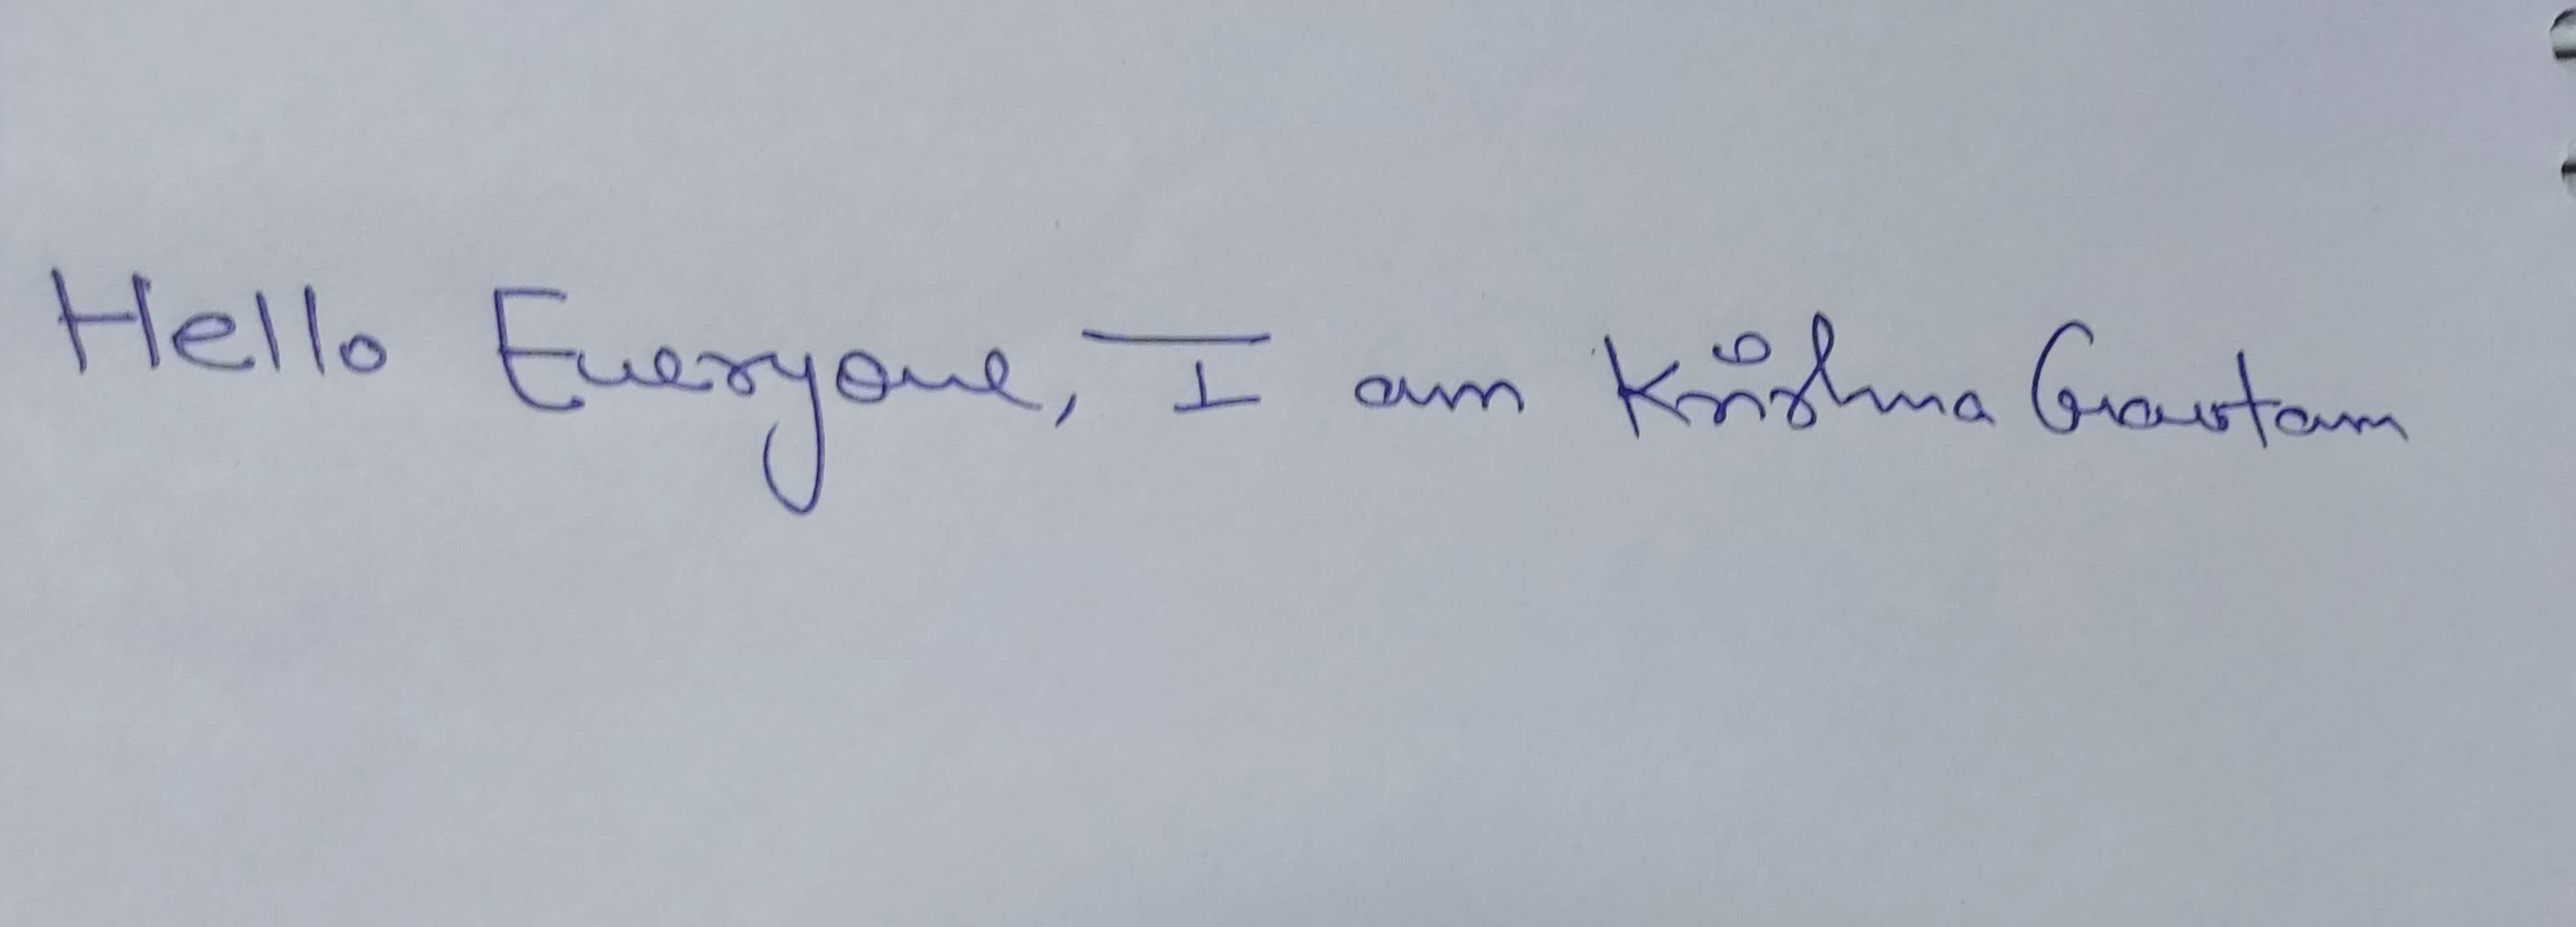 Hello Everyone, I am Krishna Gautam